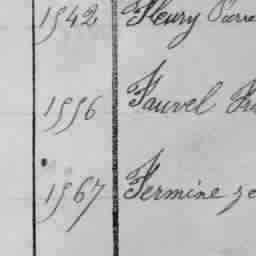 1942 Fleury Pierre
1956 Fauvel Fra
1967 Fermine Jo